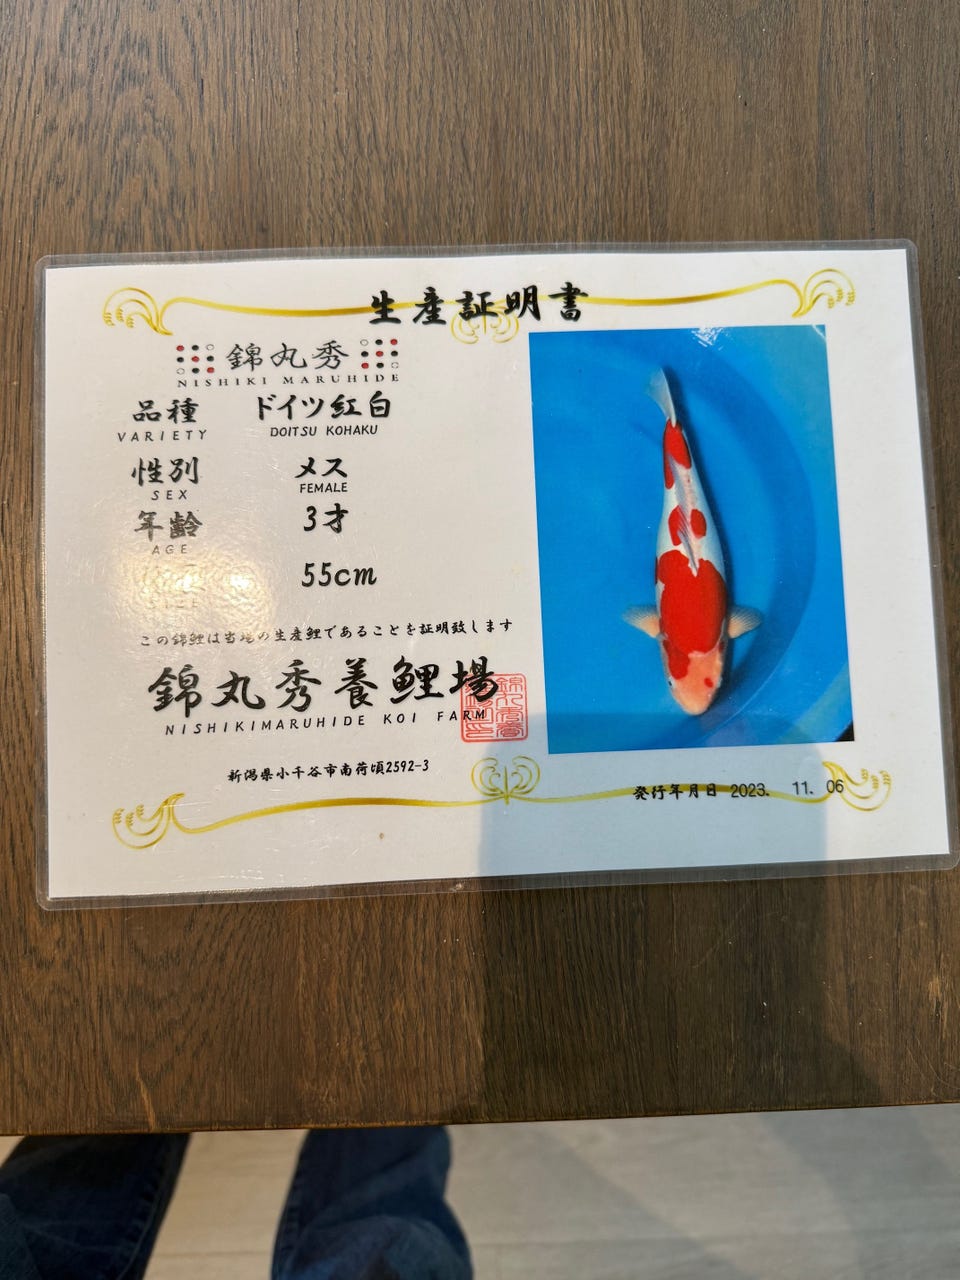 生産証明書
錦丸秀
NISHIKI MARUHIDE
品種 ドイツ紅白
VARIETY DOITSU KOHAKU
性別 メス
SEX FEMALE
年齢 3才
AGE
55cm
SIZE
この錦鯉は当場の生産鯉であることを証明致します
錦丸秀養鯉場
NISHIKIMARUHIDE KOI FARM
新潟県小千谷市南荷頃2592-3
発行年月日 2023. 11. 06